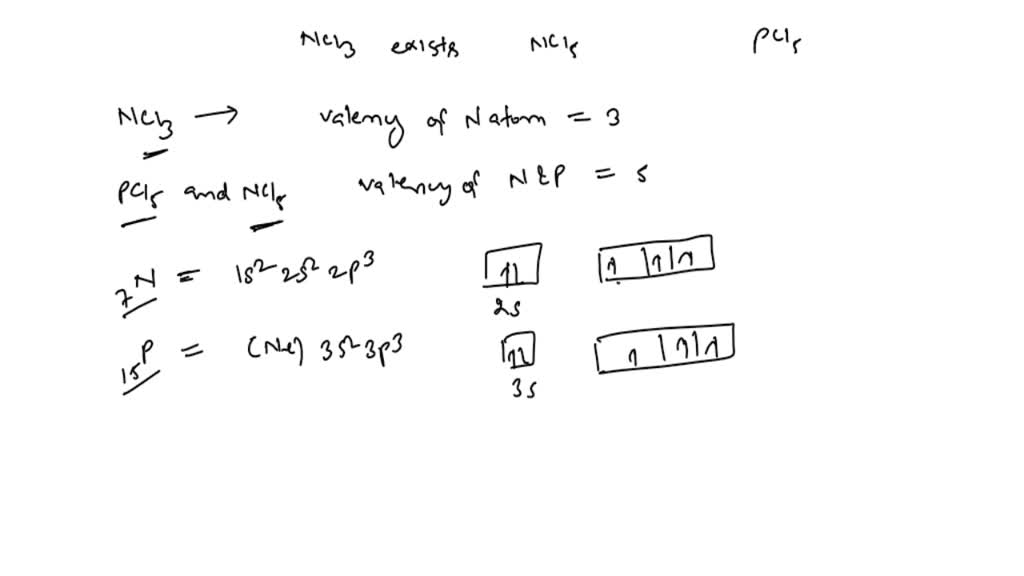 NCl3 exists NCl5 PCl5
NCl3 → valency of N atom = 3
PCl5 and NCl5 valency of N & P = 5
7N = 1s2 2s2 2p3 1l 1 1 1
2s
15P = (Ne) 3s2 3p3 1l 1 1 1
3s